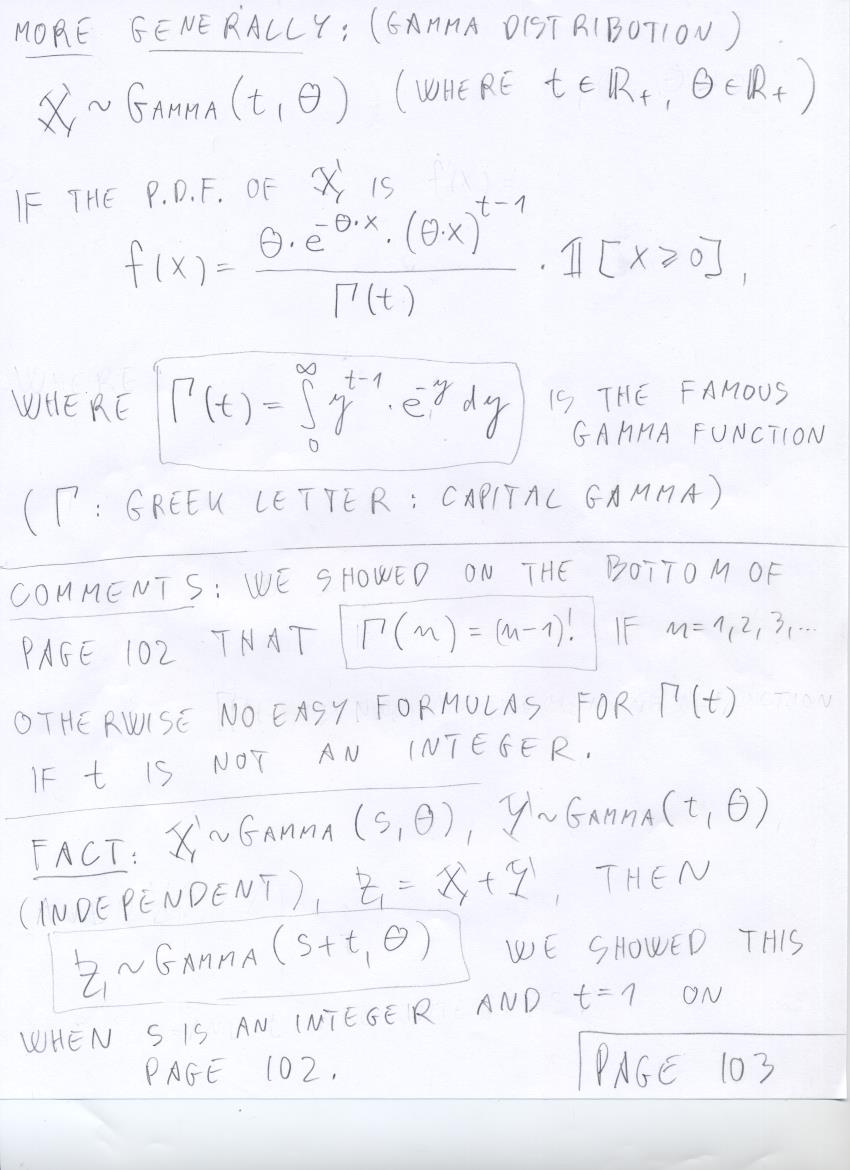 MORE GENERALLY: (GAMMA DISTRIBUTION)
X ~ GAMMA(t, θ) (WHERE t ∈ ℝ₊, θ ∈ ℝ₊)
IF THE P.D.F. OF X IS
f(x) = θ·e^{-θ·x}·(θ·x)^{t-1} / Γ(t) · 𝟙[x ≥ 0],
WHERE Γ(t) = ∫_0^∞ y^{t-1}·e^{-y} dy IS THE FAMOUS
GAMMA FUNCTION
(Γ: GREEK LETTER: CAPITAL GAMMA)
COMMENTS: WE SHOWED ON THE BOTTOM OF
PAGE 102 THAT Γ(n) = (n-1)! IF n=1,2,3,...
OTHERWISE NO EASY FORMULAS FOR Γ(t)
IF t IS NOT AN INTEGER.
FACT: X ~ GAMMA(s, θ), Y ~ GAMMA(t, θ)
(INDEPENDENT), Z = X + Y, THEN
Z ~ GAMMA(s+t, θ) WE SHOWED THIS
WHEN s IS AN INTEGER AND t=1 ON
PAGE 102.
PAGE 103